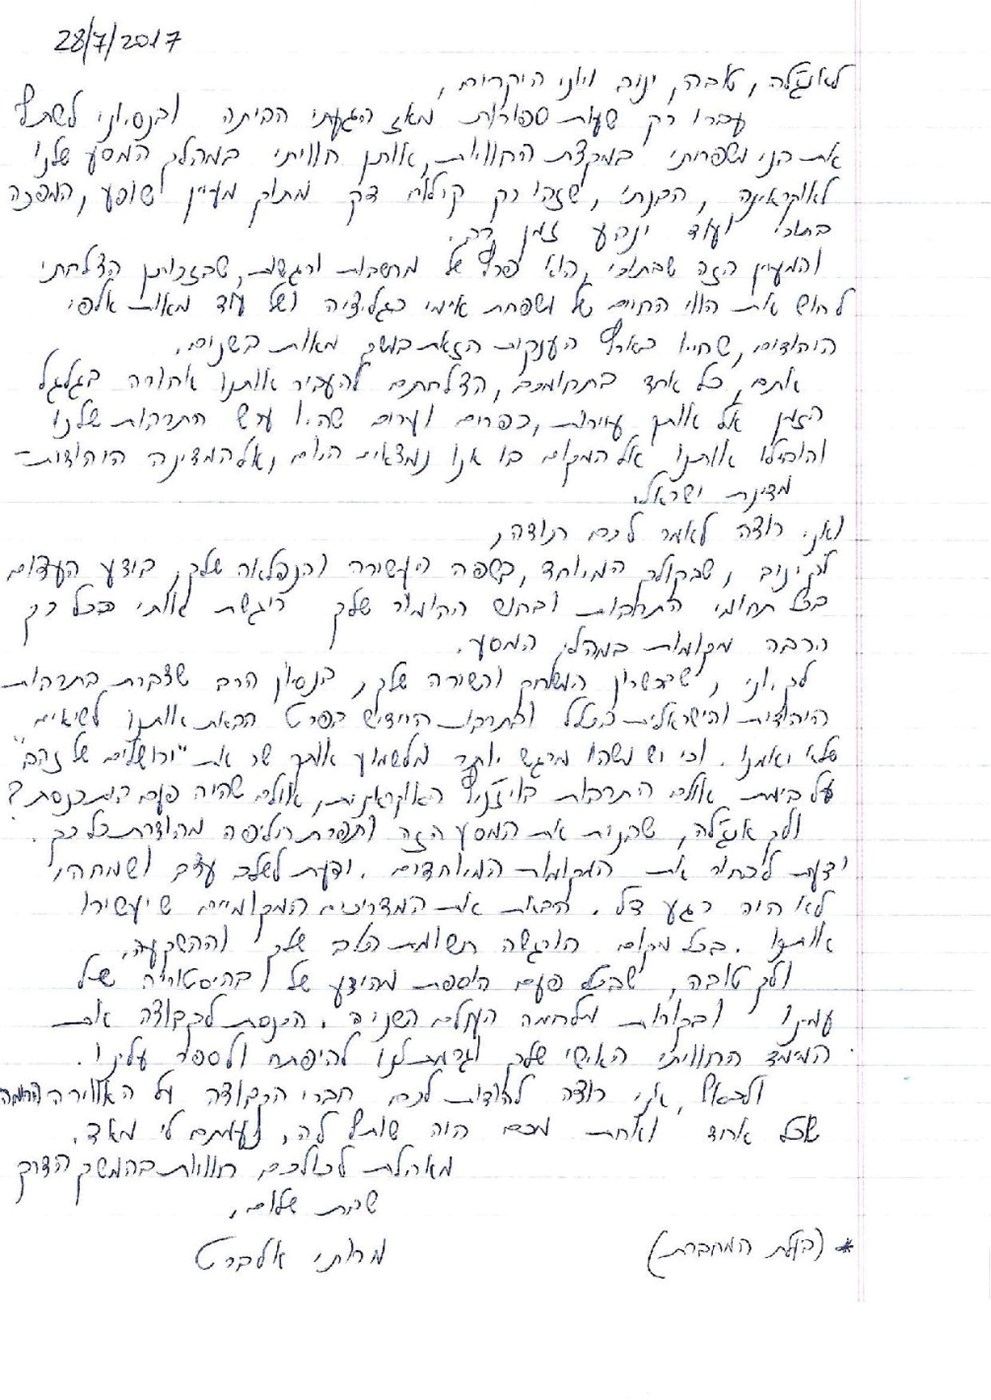 28/7/2017
לאנג'לה, טובה, יניב ויוני היקרים,
עברו רק שעות ספורות מאז הגעתי הביתה ובנסיוני לשתף
את בני משפחתי במקצת החוויות, אותן חוויתי במהלך המסע שלנו
לאוקראינה, הבנתי, שזהו רק קילוח דק מתוך מעיין שופע, המפכה
בתוכי ועוד ינבע זמן רב.
והמעיין הזה שבתוכי, הוא פרץ של מחשבות ורגשות, שבזכותן הצלחתי
לחוש את הווי החיים של משפחת אימי בגליציה ושל עוד מאות אלפי
יהודים, שחיו בארץ הענקית הזאת במשך מאות בשנים.
אתם, כל אחד בתחומכם, הצלחתם להעביר אותנו אחורה בגלגל
הזמן אל אותן עיירות, כפרים וערים שהיו ערש התרבות שלנו
והובילו אותנו אל המקום בו אנו נמצאים היום, אל המדינה היהודית-
מדינת ישראל.
ואני רוצה לאמר לכם תודה,
לך יניב, שבקולך המיוחד, בשפה העשירה והנפלאה שלך, בידע העצום
בכל תחומי התרבות ובחוש ההומור שלך ריגשת אותי בכל כך
הרבה מקומות במהלך המסע.
לך יוני, שבכשרון המשחק והשירה שלך, בנסיון הרב שצברת בתרבות
היהודית והישראלית בכלל ובתרבות היידיש בפרט הבאת אותנו לשיאים
שלא יאמנו. וכי יש משהו מרגש יותר מלשמוע אותך שר את "ירושלים של זהב"
על בימת אולם התרבות בויז'ניץ האוקראינית, אולם שהיה פעם בית כנסת?
ולך אנג'לה, שבנית את המסע הזה ותפרת חליפה מהודרת כל כך.
ידעת לבחור את המקומות המיוחדים. ידעת לשלב עצב ושמחה,
לא היה רגע דל. הבאת את המדריכים המקומיים שיעשירו
אותנו. בכל מקום הורגשה תשומת הלב שלך וההשקעה.
ולך טובה, שבכל פעם הוספת מהידע שלך בהיסטוריה של
עמינו ובקורות מלחמת העולם השניה. הכנסת לקבוצה את
המימד החוויתי האישי שלך וגרמת לנו להיפתח ולספר עלינו.
ולבסוף, אני רוצה להודות לכם, חברי הקבוצה על האווירה החמה
שכל אחד ואחת מכם היה שותף לה, נעמתם לי מאד.
מאחלת לכולכם חוויות בהמשך הדרך
שבת שלום,
מרותי אלברט
* (בעלת המחברת)